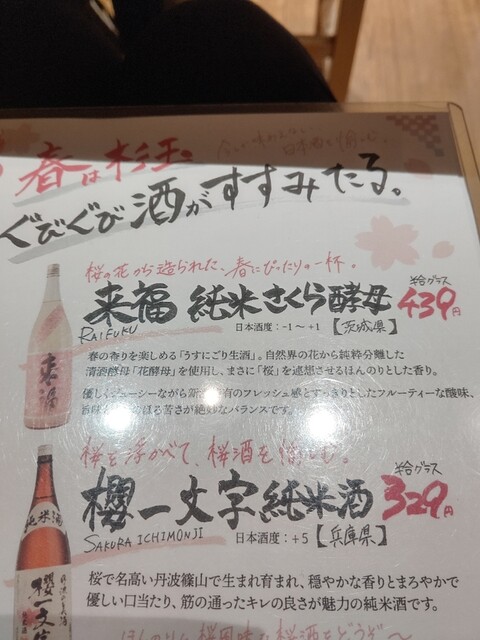 春は杉玉
今しか味わえない
日本酒で愉しむ。
ぐびぐび酒がすすみたる。
桜の花から造られた、春にぴったりの一杯。
来福 純米さくら酵母
半合グラス
439円
RAIFUKU
日本酒度:-1~+1【茨城県】
春の香りを楽しめる「うすにごり生酒」。自然界の花から純粋分離した
清酒酵母「花酵母」を使用し、まさに「桜」を連想させるほんのりとした香り。
優しくジューシーながら新酒特有のフレッシュ感とすっきりとしたフルーティーな酸味、
のほる苦さが絶妙なバランスです。
来福
桜を浮かべて、桜酒を愉しむ。
櫻一文字純米酒
半合グラス
329円
SAKURA ICHIMONJI
日本酒度:+5【兵庫県】
桜で名高い丹波篠山で生まれ育まれ、穏やかな香りとまろやかで
優しい口当たり、筋の通ったキレの良さが魅力の純米酒です。
純米酒
櫻一文字
ほんのりと桜風味な桜酒をどうぞ~